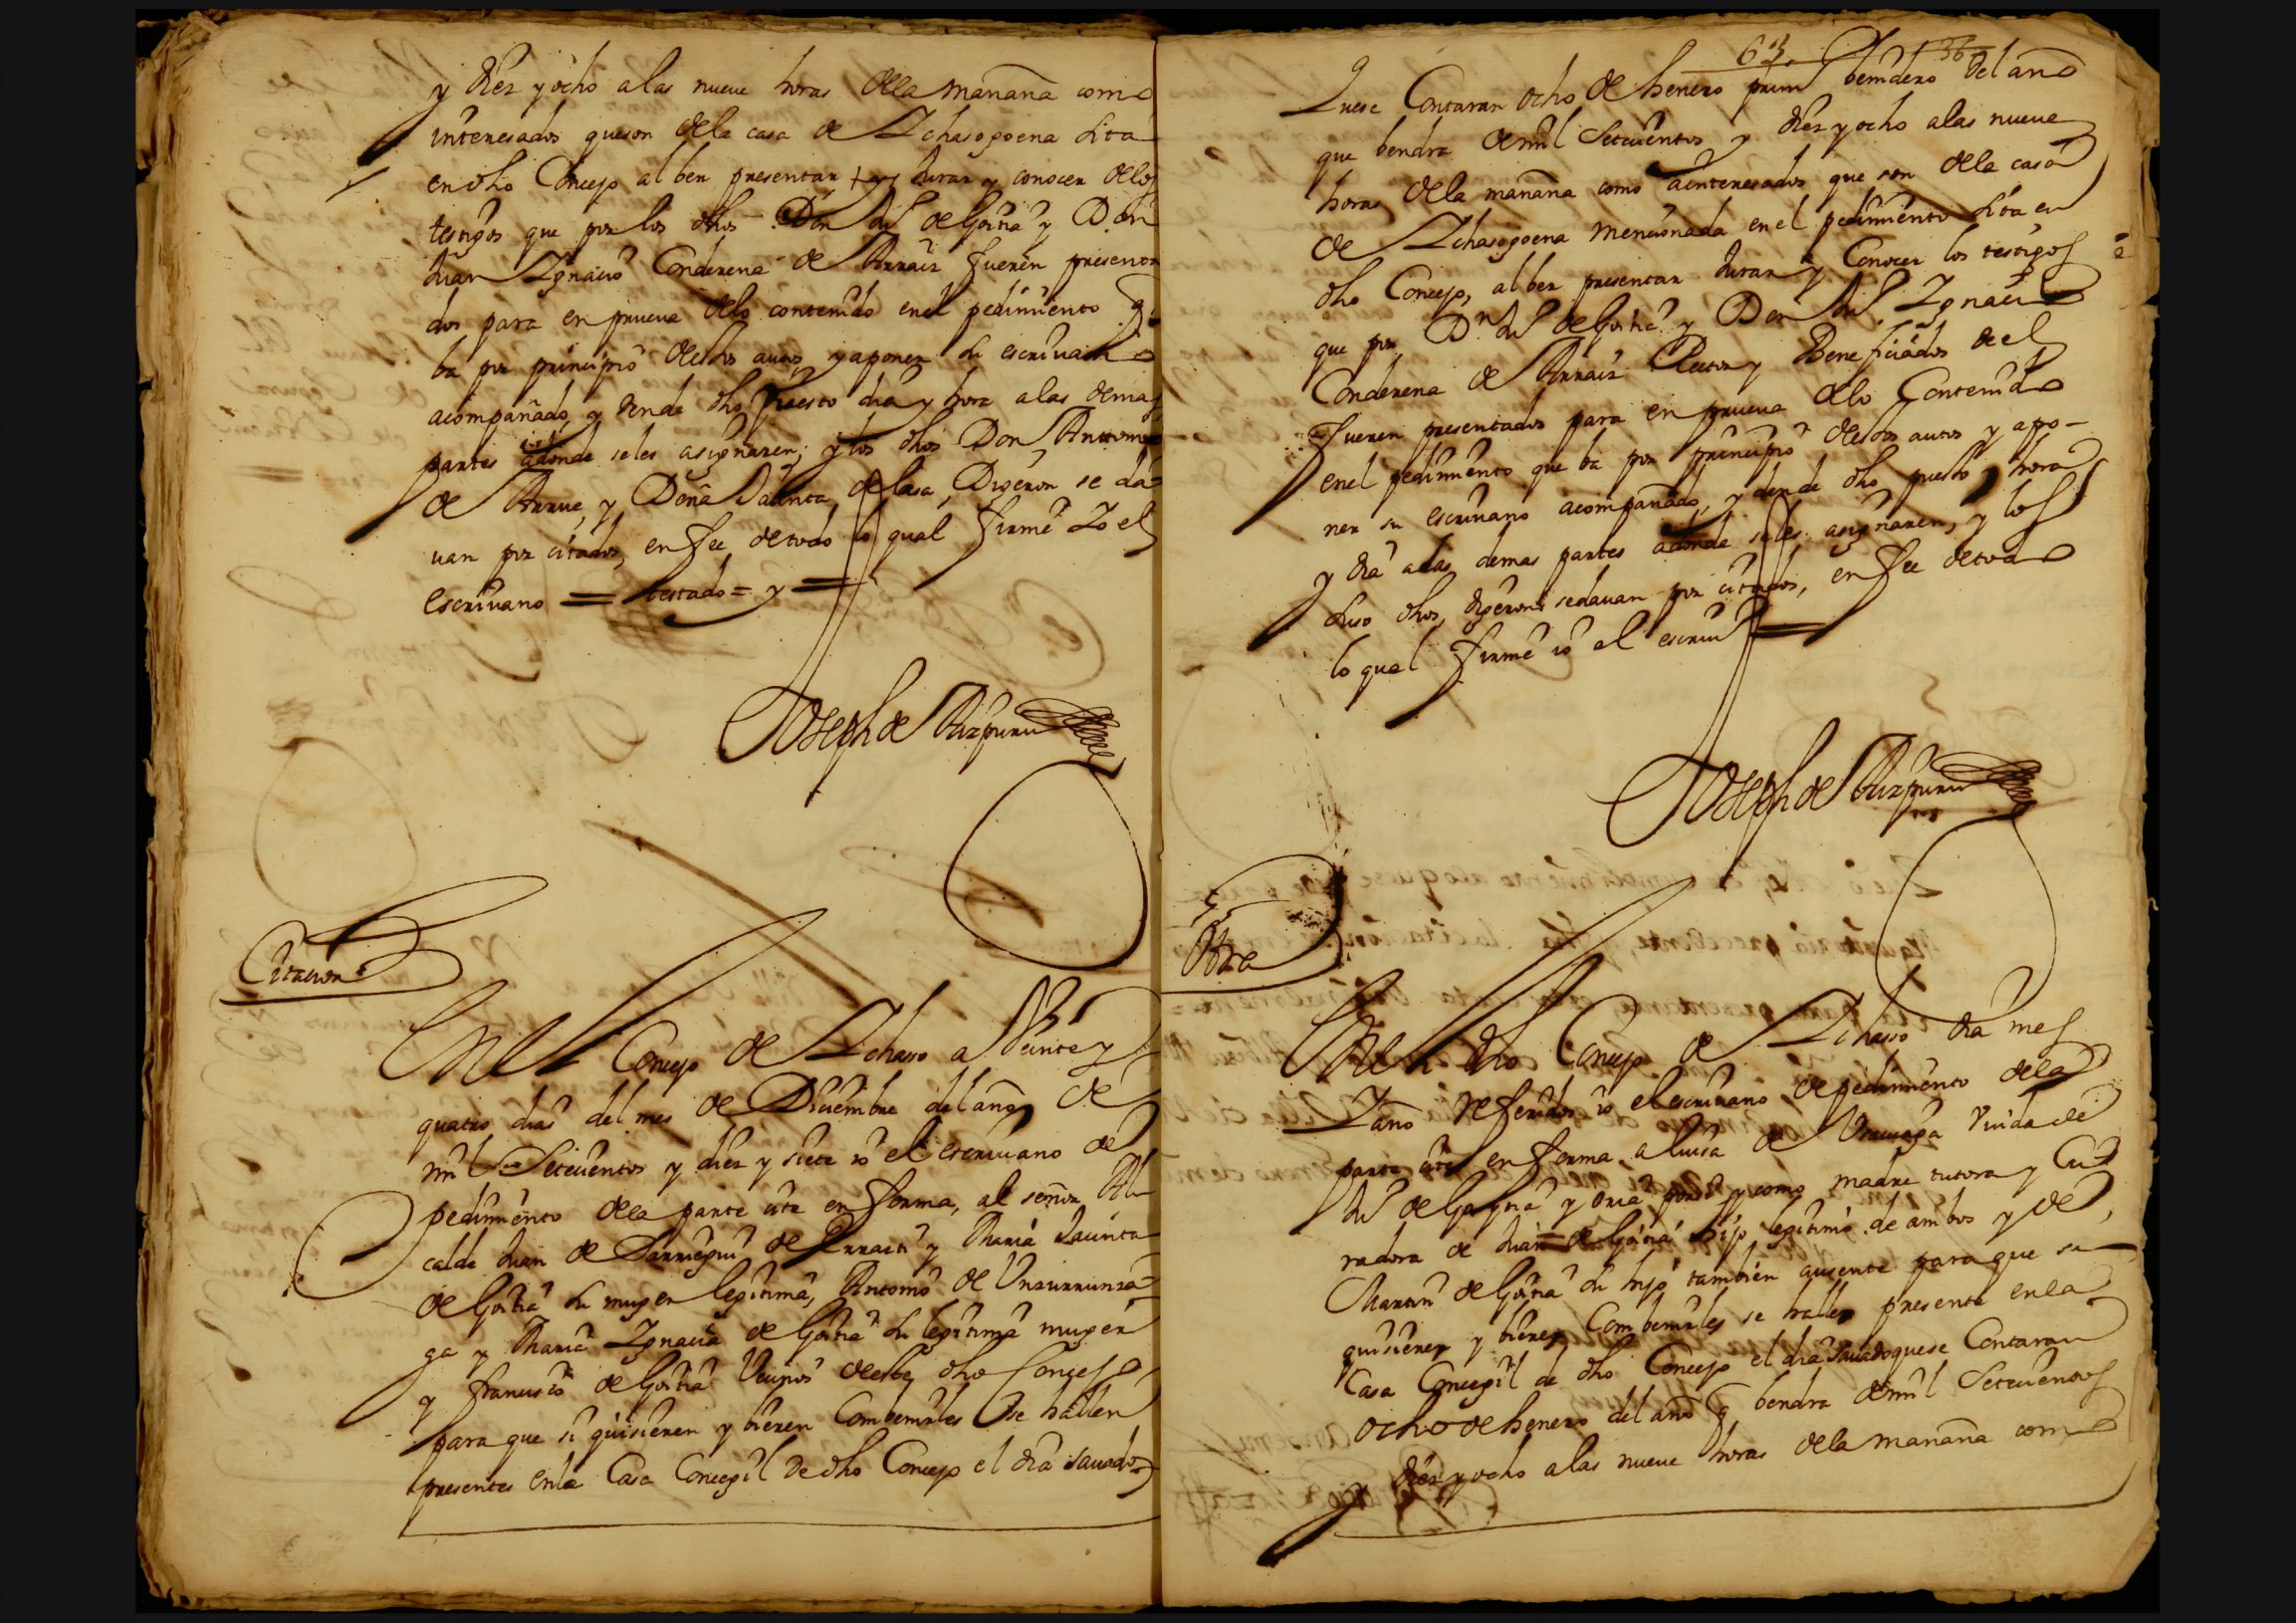 y diez y ocho a las nueve horas dela mañana como
interesados queson dela casa de Ichasogoena sita
en dho Concejo al ber presentar + y Jurar y conocer delos
testigos que por los dhos Don Juº de Goitia y Don
Juan Ignacio Conderena de Arraiz fueren presenta
dos para en prueva delo contenido enel pedimiento q.
ba por principio destos autos, y aponer su escrivano
acompañado, y dende dho puesto dia y hora alas demas
partes adonde seles asignaren; y los dhos Don Antonio
de Arrue, y Doña Jacinta de lasa, Digeron se da
uan por citados, en fee de todo lo qual firmé Yo el
escriuano = testado = y =
Joseph de Aizpuru
Citacion
Enel Concejo de Ichaso a Veinte y
quatro dias del mes de Diciembre del año de
mil Setecientos y diez y siete yo el escriuano de
pedimiento dela parte cite en forma, al señor Al
calde Juan de Sarriegui de Erraizti y Maria Jacinta
de Goitia su muger legitima, Antonio de Unzurrunza
ga y Maria Ignacia de Goitia su legitima muger
y francisco de Goitia Vecinos deeste dho Concejo
para que si quisieren y bieren Combenirles se hallen
presentes enla Casa Concegil de dho Concejo el dia sauado
63. 36
quese Contaran ocho de henero primº benidero del año
que bendra de mil Setecientos y diez y ocho alas nueve
horas dela mañana como ainteresados que son dela casa
de Ichasogoena mencionada en el pedimiento sita en
dho Concejo, al ber presentar Jurar y Conocer los testigos
que por Dn Juº de Goitia y Don Juº Ignacio
Conderena de Arraiz Rector y Beneficiados de el
fueren presentados para en prueva delo Contenido
enel pedimiento que ba por principio destos autos y apo-
ner su escriuano acompañado, y dende dho puesto hora
y dia alas demas partes adonde seles asignaren, y los
suso dhos, digeron sedauan por citados, en fee detodo
lo qual firmé yo el escriuº =
Joseph de Aizpuru
Otra
Enel dho Concejo de Ichasso dia mes
y año Referidos yo el escriuano de pedimiento dela
parte cite en forma, a luisa de Viuda de
Juº de Goytia y oria por si y como madre tutora y Cu
radora de Juan de Goitia hijo legitimo de ambos y de
Martin de Goitia su hijo tambien ausente para que si
quisieren y bieren Combenirles se hallen presente enla
Casa Concegil de dho Concejo el dia sauado quese Contaran
ocho de henero del año q bendra de mil Setecientos
y diez y ocho alas nueve horas dela mañana como